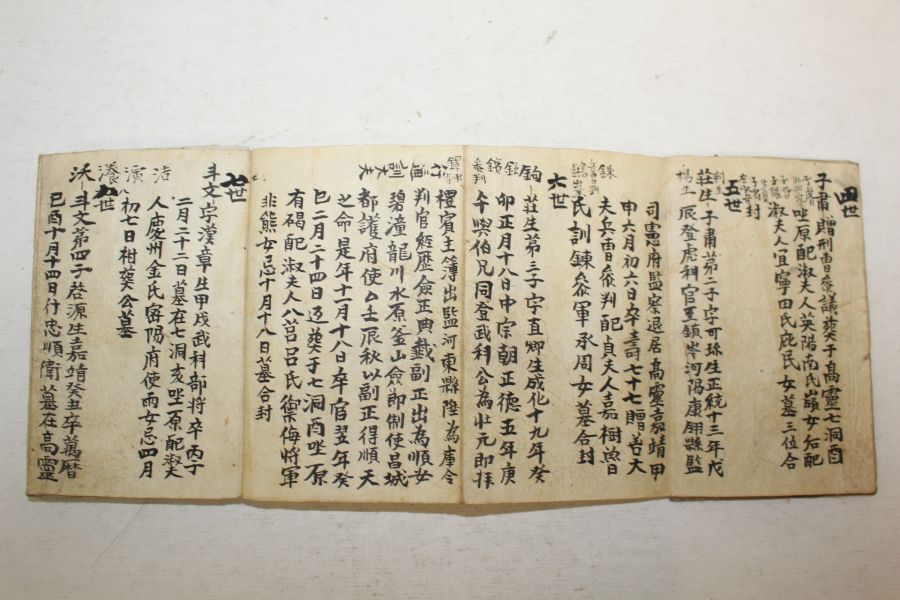 四世
子肅贈刑曹參議葬于高靈七洞酉
坐原配淑夫人英陽南氏嶺女后配
淑夫人宜寧田氏庇民女墓三位合
封
五世
荘生子肅第二子字可珎生正統十三年戊
辰登虎科官至領岑河陽康翎縣監
司憲府監察退居高靈嘉靖甲
申六月初六日卒壽七十七贈嘉大
夫兵曺參判配貞夫人嘉樹曾
氏訓鍊參軍永周女墓合封
六世
鉤 荘生第三子字直卿生成化十九年癸
卯正月十八日中宗朝正德五年庚
午與伯兄同登武科公為壮元即拝
禮賓主簿出監河東縣陞為庫令
判官經歷僉正典籤副正出為順女
碧潼龍川水原釜山僉即制使昌城
都護府使公壬辰秋以副正得順天
之命是年十一月十八日卒官翌年癸
巳二月二十四日返葬于七洞酉坐原
有碣配淑夫人八莒呂氏禦侮將軍
非熊女忌十月十八日墓合封
七世
斗文 字漢章生甲戌武科部將卒丙子
二月二十二日墓在七洞亥坐原配淑夫
人慶州金氏密陽府使雨女忌四月
初七日祔葵公墓
八世
沃 斗文第四子啓源生嘉靖癸丑卒萬曆
己酉十月十四日行忠順衛墓在高靈